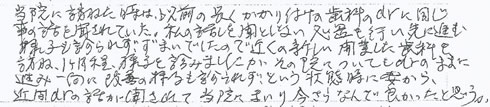 当院に訪ねた時は、以前の長くかかり付けの歯科のdrに同じ
事の話を聞されていた。私の話しを聞としない 処置を行い先に進む
様子も受けられずずまいでしたので近くの新しい開業した歯科を
訪ね、1ヶ月程、様子を試みましたが その院についてもdrのままに
進み一向に改善の様子も受けられずという状態時に妻から、
近間drの話が聞されて当院にまいり今さらなんで良かったと思う。